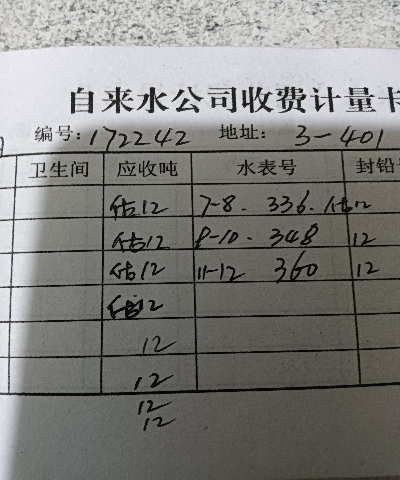 自来水公司收费计量卡
编号:172242 地址: 3-401
卫生间 应收吨 水表号 封铅
估12 7-8. 336. 估12
估12 8-10. 348 12
估12 11-12 360 12
估12
12
12
12
12